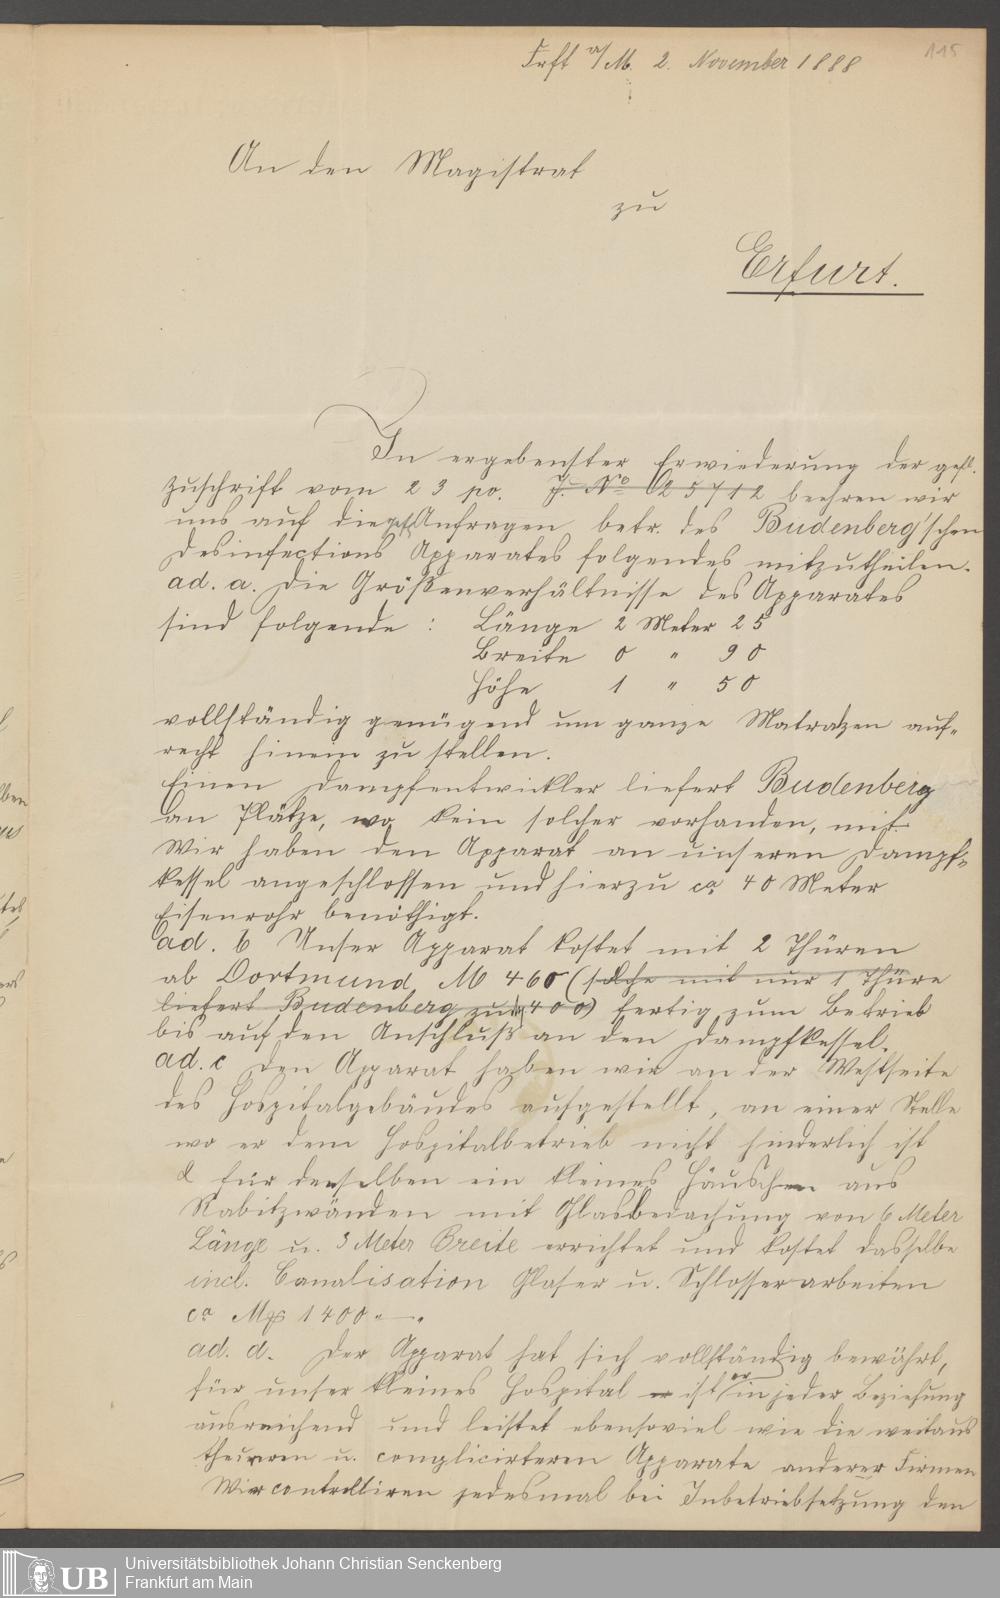 115
Frft a/M. 2. November 1888
An den Magistrat
zu
Erfurt.
In ergebenster Erwiederung der gefl.
Zuschrift vom 23 po. J. No 25712 beehren wir
uns auf die gefl. Anfragen betr. des Budenberg'schen
Desinfections Apparates folgendes mitzutheilen.
ad. a. Die Größenverhältnisse des Apparates
sind folgende : Länge 2 Meter 25
Breite 0 " 90
Höhe 1 " 50
vollständig genügend um ganze Matratzen auf-
recht hinein zu stellen.
Einen Dampfentwickler liefert Budenberg
an Plätze, wo kein solcher vorhanden, mit
Wir haben den Apparat an unseren Dampf-
kessel angeschlossen und hierzu ca 40 Meter
Eisenrohr benöthigt.
ad. b Unser Apparat kostet mit 2 Thüren
ab Dortmund M 460 (solche mit nur 1 Thüre
liefert Budenberg zu 400) fertig zum Betrieb
bis auf den Anschluß an den Dampfkessel.
ad. c Den Apparat haben wir an der Westseite
des Hospitalgebäudes aufgestellt, an einer Stelle
wo er dem Hospitalbetrieb nicht hinderlich ist
& für denselben ein kleines Häuschen aus
Rabitzwänden mit Glasbedachung von 6 Meter
Länge u. 3 Meter Breite errichtet und kostet dasselbe
incl. Canalisation Glaser u. Schlosserarbeiten
ca Mk 1400.—.
ad. d. Der Apparat hat sich vollständig bewährt,
für unser kleines Hospital ist er in jeder Beziehung
ausreichend und leistet ebensoviel wie die weitaus
theureren u. complicirteren Apparate anderer Firmen
Wir controlliren jedesmal bei Inbetriebsetzung den
UB
Universitätsbibliothek Johann Christian Senckenberg
Frankfurt am Main